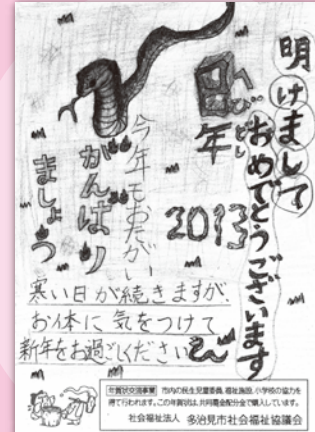 明けまして
おめでとうございます
巳年
へびどし
2013
今年もおたがい
がんばり
ましょう
寒い日が続きますが、
お体に気をつけて
新年をお過ごしください
年賀状交流事業 市内の民生児童委員、福祉施設、小学校の協力を
得て行われます。この年賀状は、共同募金配分金で購入しています。
社会福祉法人 多治見市社会福祉協議会